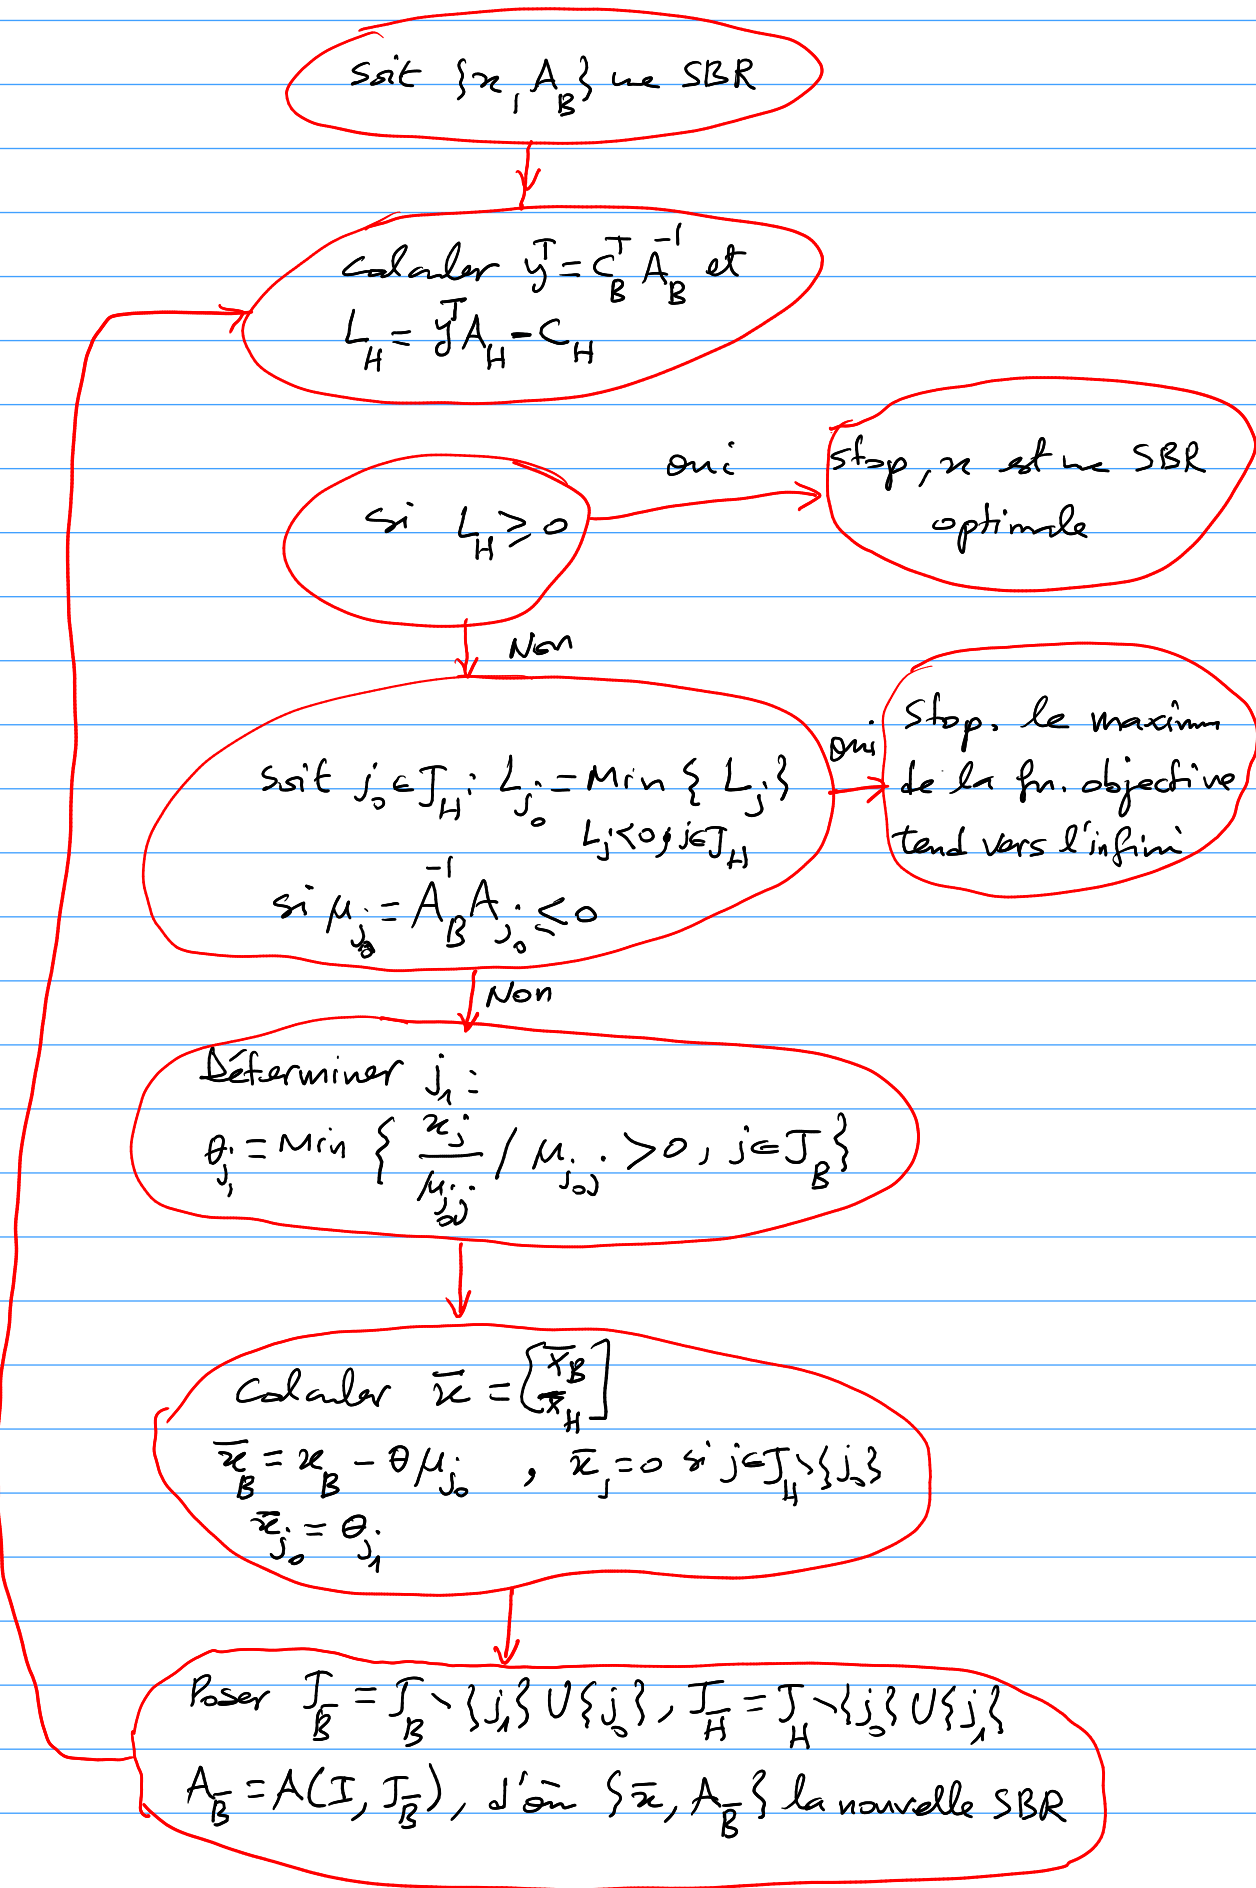 Soit {x, A_B} une SBR
Calculer y^T = C_B^T A_B^{-1} et
L_H = y^T A_H - C_H
si L_H ≥ 0
oui
Stop, x est une SBR
optimale
Non
Soit j_0 ∈ J_H : L_{j_0} = Min { L_j }
L_j < 0, j ∈ J_H
si μ_{j_0} = A_B^{-1} A_{j_0} ≤ 0
oui
Stop. le maximum
de la fn. objective
tend vers l'infini
Non
Déterminer j_1 :
θ_{j_1} = Min { x_j / μ_{j_0 j} / μ_{j_0 j} > 0, j ∈ J_B }
Calculer x̄ = [x̄_B
x̄_H]
x̄_B = x_B - θ μ_{j_0} , x̄_j = 0 si j ∈ J_H \ {j_0}
x̄_{j_0} = θ_{j_1}
Poser J_B̄ = J_B \ {j_1} ∪ {j_0}, J_H̄ = J_H \ {j_0} ∪ {j_1}
A_B̄ = A(I, J_B̄), d'où {x̄, A_B̄} la nouvelle SBR